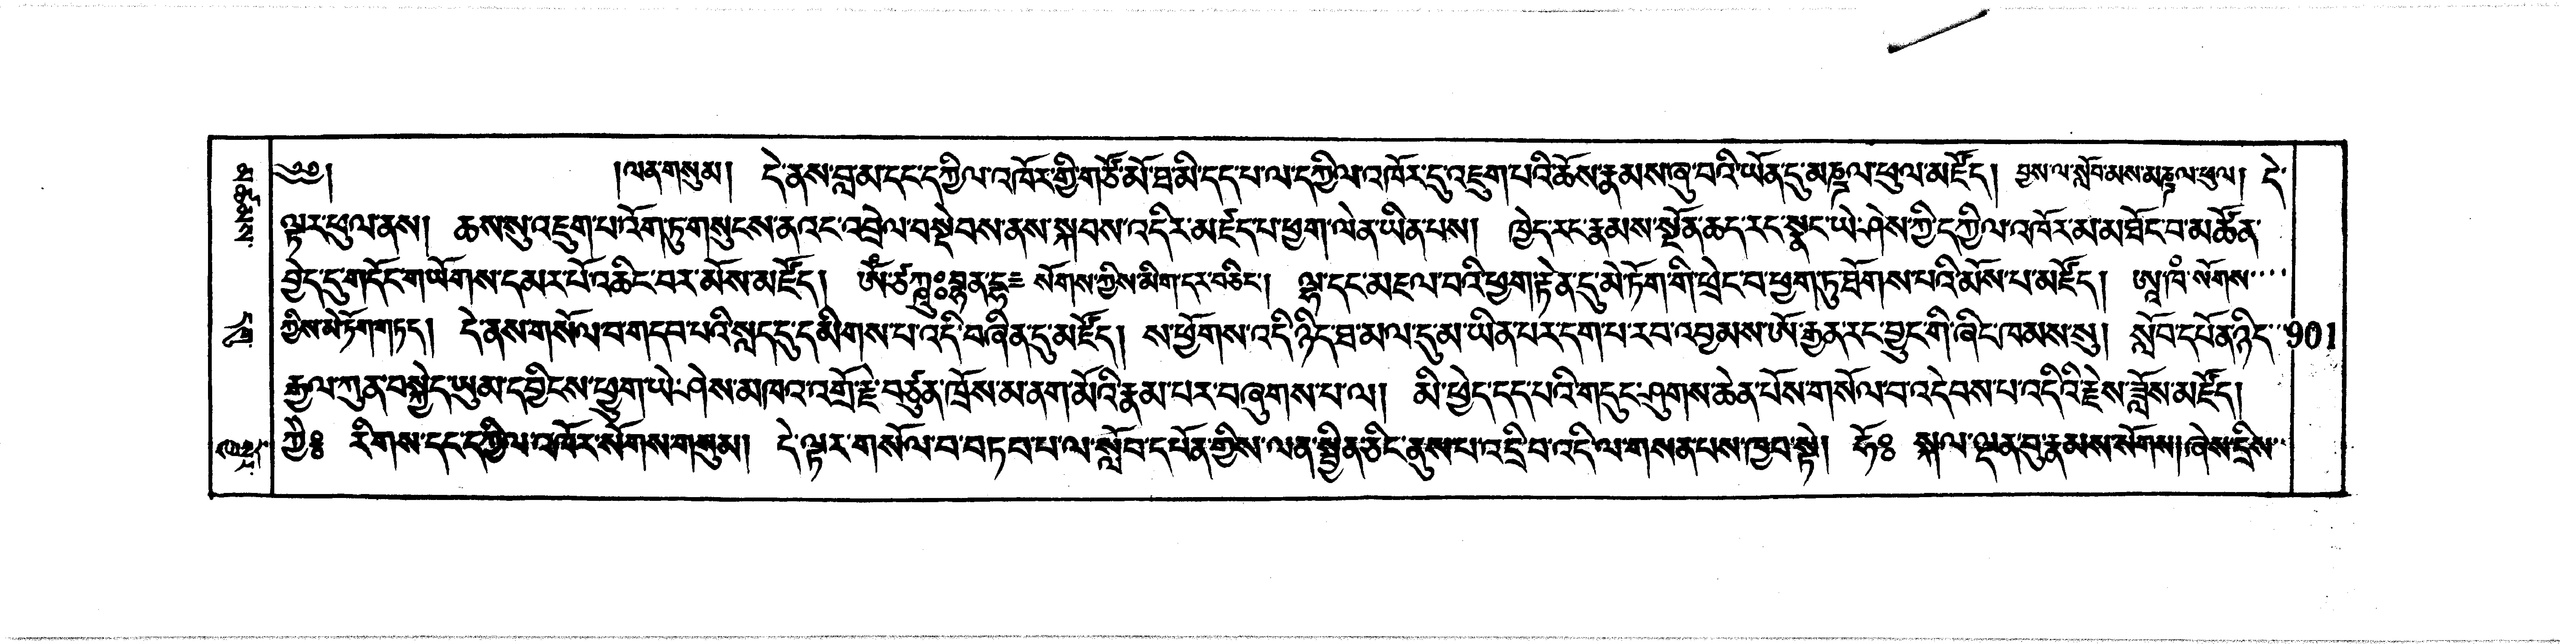 ༄༅། །ལན་གསུམ། དེ་ནས་བླ་མ་དང་དཀྱིལ་འཁོར་གྱི་གཙོ་བོ་ཐ་མི་དད་པ་ལ་དཀྱིལ་འཁོར་དུ་འཇུག་པའི་ཆོས་རྣམས་ཞུ་བའི་ཡོན་དུ་མཎྜལ་ཕུལ་མཛོད། བྱས་ལ་སློབ་མས་མཎྜལ་ཕུལ། དེ་
ལྟར་ཕུལ་ནས། ཆས་སུ་འཇུག་པ་འོག་ཏུ་གསུངས་ན་འང་འབྲེལ་བསྡེབས་ནས་སྐབས་འདིར་མཛད་པ་ཕྱག་ལེན་ཡིན་པས། ཁྱེད་རང་རྣམས་སྔོན་ཆད་རང་སྣང་ཡེ་ཤེས་ཀྱི་དཀྱིལ་འཁོར་མ་མཐོང་བ་མཚོན་
བྱེད་དུ་གདོང་གཡོགས་དམར་པོ་འཆིང་བར་མོས་མཛོད། ཨོཾ་ཙཀྵུཿབྷནྡྷ༔ སོགས་ཀྱིས་མིག་དར་བཅིང་། ལྷ་དང་མཇལ་བའི་ཕྱག་རྟེན་དུ་མེ་ཏོག་གི་ཕྲེང་བ་ཕྱག་ཏུ་ཐོགས་པའི་མོས་པ་མཛོད། ཨཱ་ཁཾ་སོགས
ཀྱིས་མེ་ཏོག་གཏད། དེ་ནས་གསོལ་བ་གདབ་པའི་སླད་དུ་དམིགས་པ་འདི་བཞིན་དུ་མཛོད། ས་ཕྱོགས་འདི་ཉིད་ཐ་མལ་དུ་མ་ཡིན་པར་དག་པ་རབ་འབྱམས་ཨོ་རྒྱན་རང་བྱུང་གི་ཞིང་ཁམས་སུ། སློབ་དཔོན་ཉིད་ ༡༠།
རྒྱལ་ཀུན་བསྐྱེད་ཡུམ་དབྱིངས་ཕྱུག་ཡེ་ཤེས་མཁའ་འགྲོ་རྗེ་བཙུན་ཁྲོས་མ་ནག་མོའི་རྣམ་པར་བཞུགས་པ་ལ། མི་ཕྱེད་དད་པའི་གདུང་ཤུགས་ཆེན་པོས་གསོལ་བ་འདེབས་པ་འདིའི་རྗེས་ཟློས་མཛོད།
ཀྱཻ༔ རིགས་དང་དཀྱིལ་འཁོར་སོགས་གསུམ། དེ་ལྟར་གསོལ་བ་བཏབ་པ་ལ་སློབ་དཔོན་གྱིས་ལན་སྦྱིན་ཅིང་ནུས་པ་འདྲི་བ་འདི་ལ་གསན་པས་ཁྱབ་སྟེ། ཧོ༔ སྐལ་ལྡན་བུ་རྣམས་སོགས། ཞེས་དྲིས་